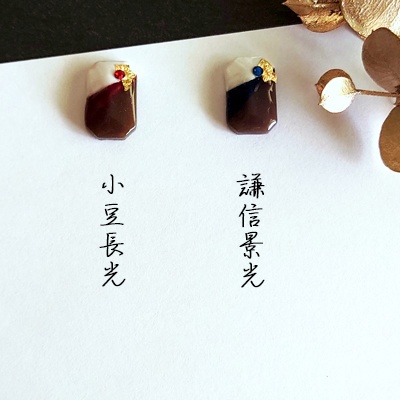 謙信景光
小豆長光